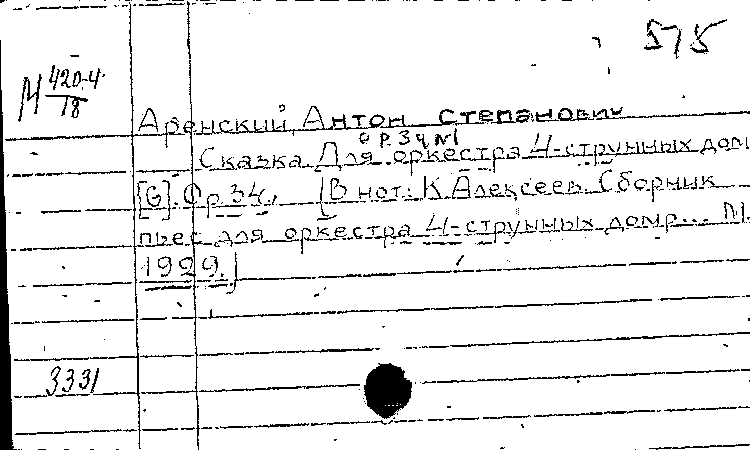 575
М 420-4
18
Аренский, Антон Степанович
ор. 34 №1
Сказка. Для оркестра 4-струнных домр
[G]. Op 34., [В нот: К Алексеев. Сборник
пьес для оркестра 4-струнных домр... М.
1929.]
3331